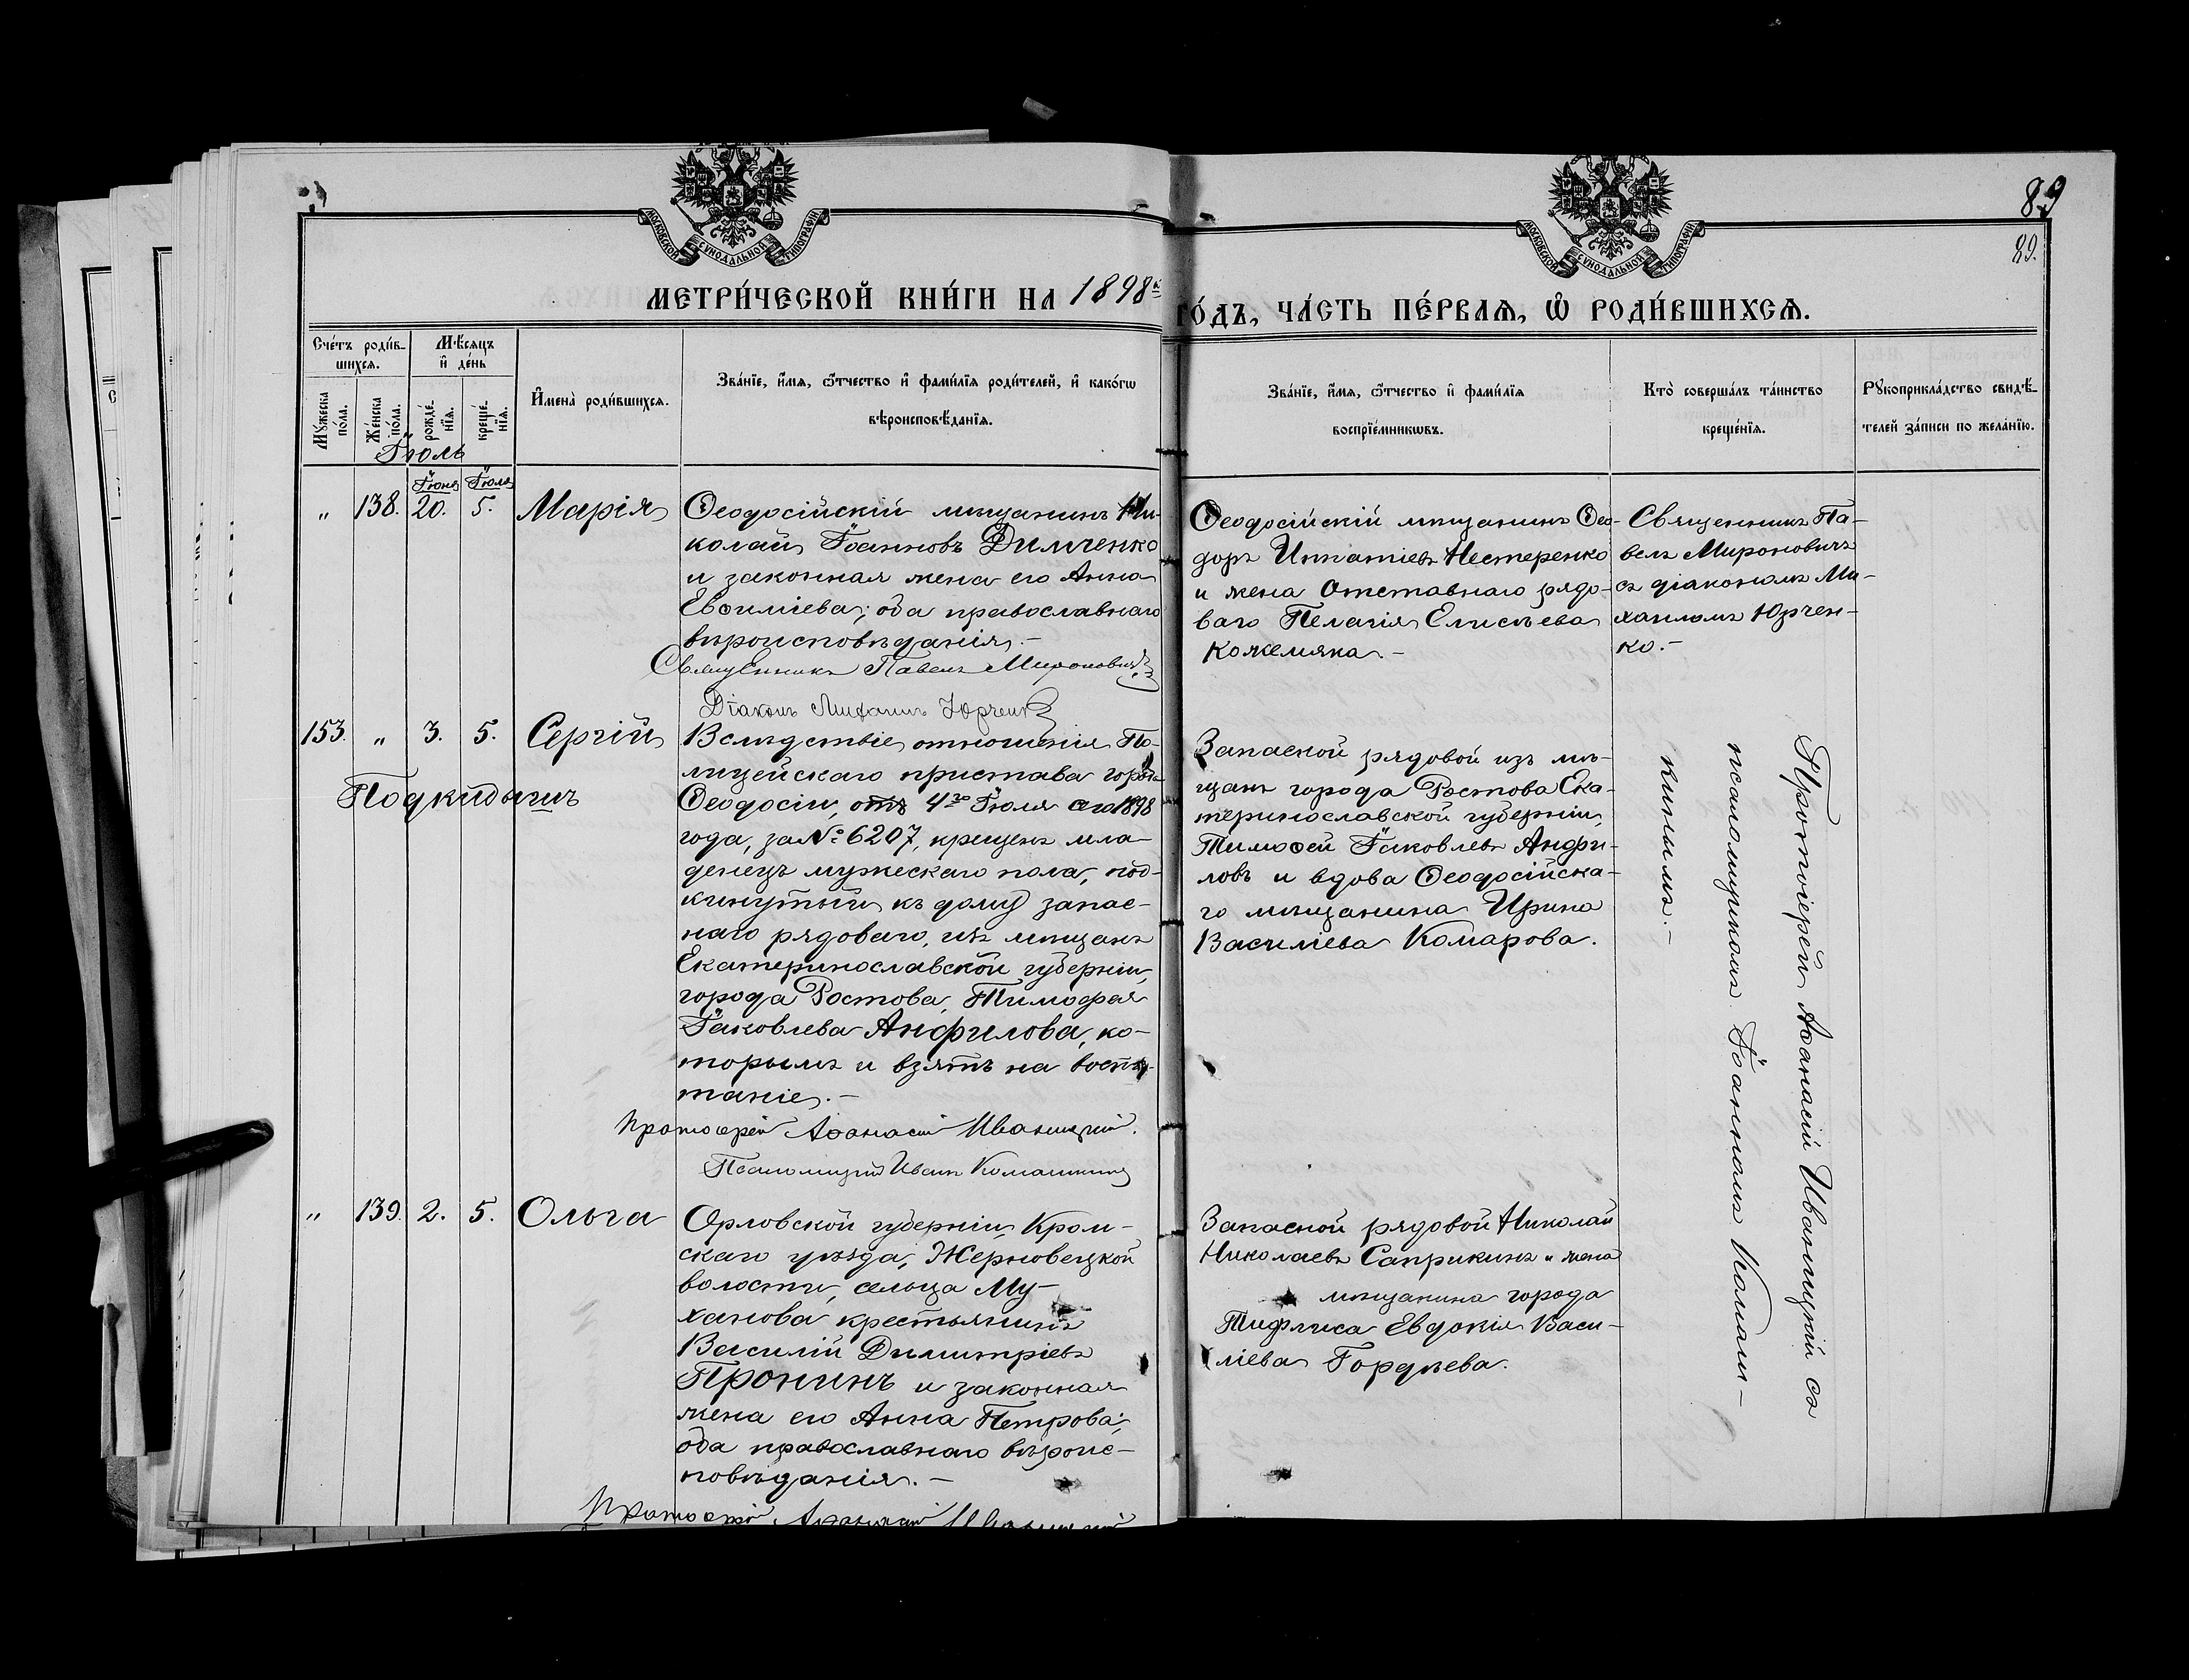 МОСКОВСКОЙ СѴНОДАЛЬНОЙ ТИПОГРАФІИ
МОСКОВСКОЙ СѴНОДАЛЬНОЙ ТИПОГРАФІИ
89
89.
МЕТРИ́ЧЕСКОЙ КНИ́ГИ НА 1898й
ГО́ДЪ, ЧА́СТЬ ПЕ́РВАѦ, Ѡ҆ РОДИ́ВШИХСѦ.
Сче́тъ роди́в-
шихсѧ.
Мѣ́сѧцъ
и҆ де́нь
Мꙋ́жеска
по́ла.
Же́нска
по́ла.
рожде́-
нїѧ.
креще́-
нїѧ.
И҆мена̀ роди́вшихсѧ.
Зва́нїе, и҆́мѧ, ѻ҆́тчество и҆ фами́лїѧ роди́телей, и҆ како́гѡ
вѣроисповѣ́данїѧ.
Зва́нїе, и҆́мѧ, ѻ҆́тчество и҆ фами́лїѧ
воспрїе́мникѡвъ.
Кто̀ соверша́лъ та́инство
креще́нїѧ.
Рꙋкоприкла́дство свидѣ́-
телей за́писи по жела́нїю.
Іюль
Іюня Іюля
" 138. 20. 5. Марія
Ѳеодосійскій мѣщанинъ Ни-
колай Іоанновъ Димченко
и законная жена его Анна
Евѳиміева; оба православнаго
вѣроисповѣданія.-
Священникъ Павелъ Мироновичъ
Діаконъ Михаилъ Юрченко
Ѳеодосійскій мѣщанинъ Ѳео-
доръ Игнатіевъ Нестеренко
и жена Отставнаго рядо-
ваго Пелагія Елисѣева
Кожемяка.-
Священникъ Па-
велъ Мироновичъ
съ діакономъ Ми-
хаиломъ Юрчен-
ко.-
153. " 3. 5. Сергій
Подкидышъ
Вслѣдствіе отношенія По-
лицейскаго пристава города
Ѳеодосіи, отъ 4го Іюля сего 1898
года, за № 6207, крещенъ мла-
денецъ мужескаго пола, под-
кинутый къ дому запас-
наго рядоваго, изъ мѣщанъ
Екатеринославской губерніи,
города Ростова, Тимофея
Іаковлева Анфилова, ко-
торымъ и взятъ на воспи-
таніе.-
Протоіерей Аѳанасій Иваницкій.
Псаломщикъ Иванъ Комашкинъ
Запасной рядовой изъ мѣ-
щанъ города Ростова Ека-
теринославской губерніи,
Тимоѳей Іаковлевъ Анфи-
ловъ и вдова Ѳеодосійска-
го мѣщанина Ирина
Василіева Комарова.
Протоіерей Аѳанасій Иваницкій съ
псаломщикомъ Іоанномъ Комаш-
кинымъ.-
" 139. 2. 5. Ольга
Орловской губерніи, Кром-
скаго уѣзда, Жерновецкой
волости, сельца Му-
ханова крестьянинъ
Василій Димитріевъ
Пронинъ и законная
жена его Анна Петрова;
оба православнаго вѣроис-
повѣданія.-
Протоіерей Аѳанасій Иваницкій
Запасной рядовой Николай
Николаевъ Саприкинъ и жена
мѣщанина города
Тифлиса Евдокія Васи-
ліева Гордѣева.